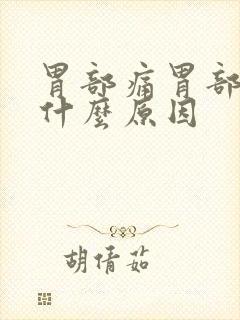 胃部痛胃部
什麼原因
胡倩茹